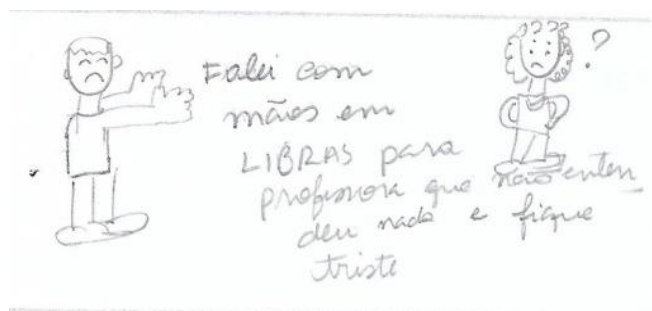 ?
Falei com
mãos em
LIBRAS para
professora que não enten
deu nada e fique
triste